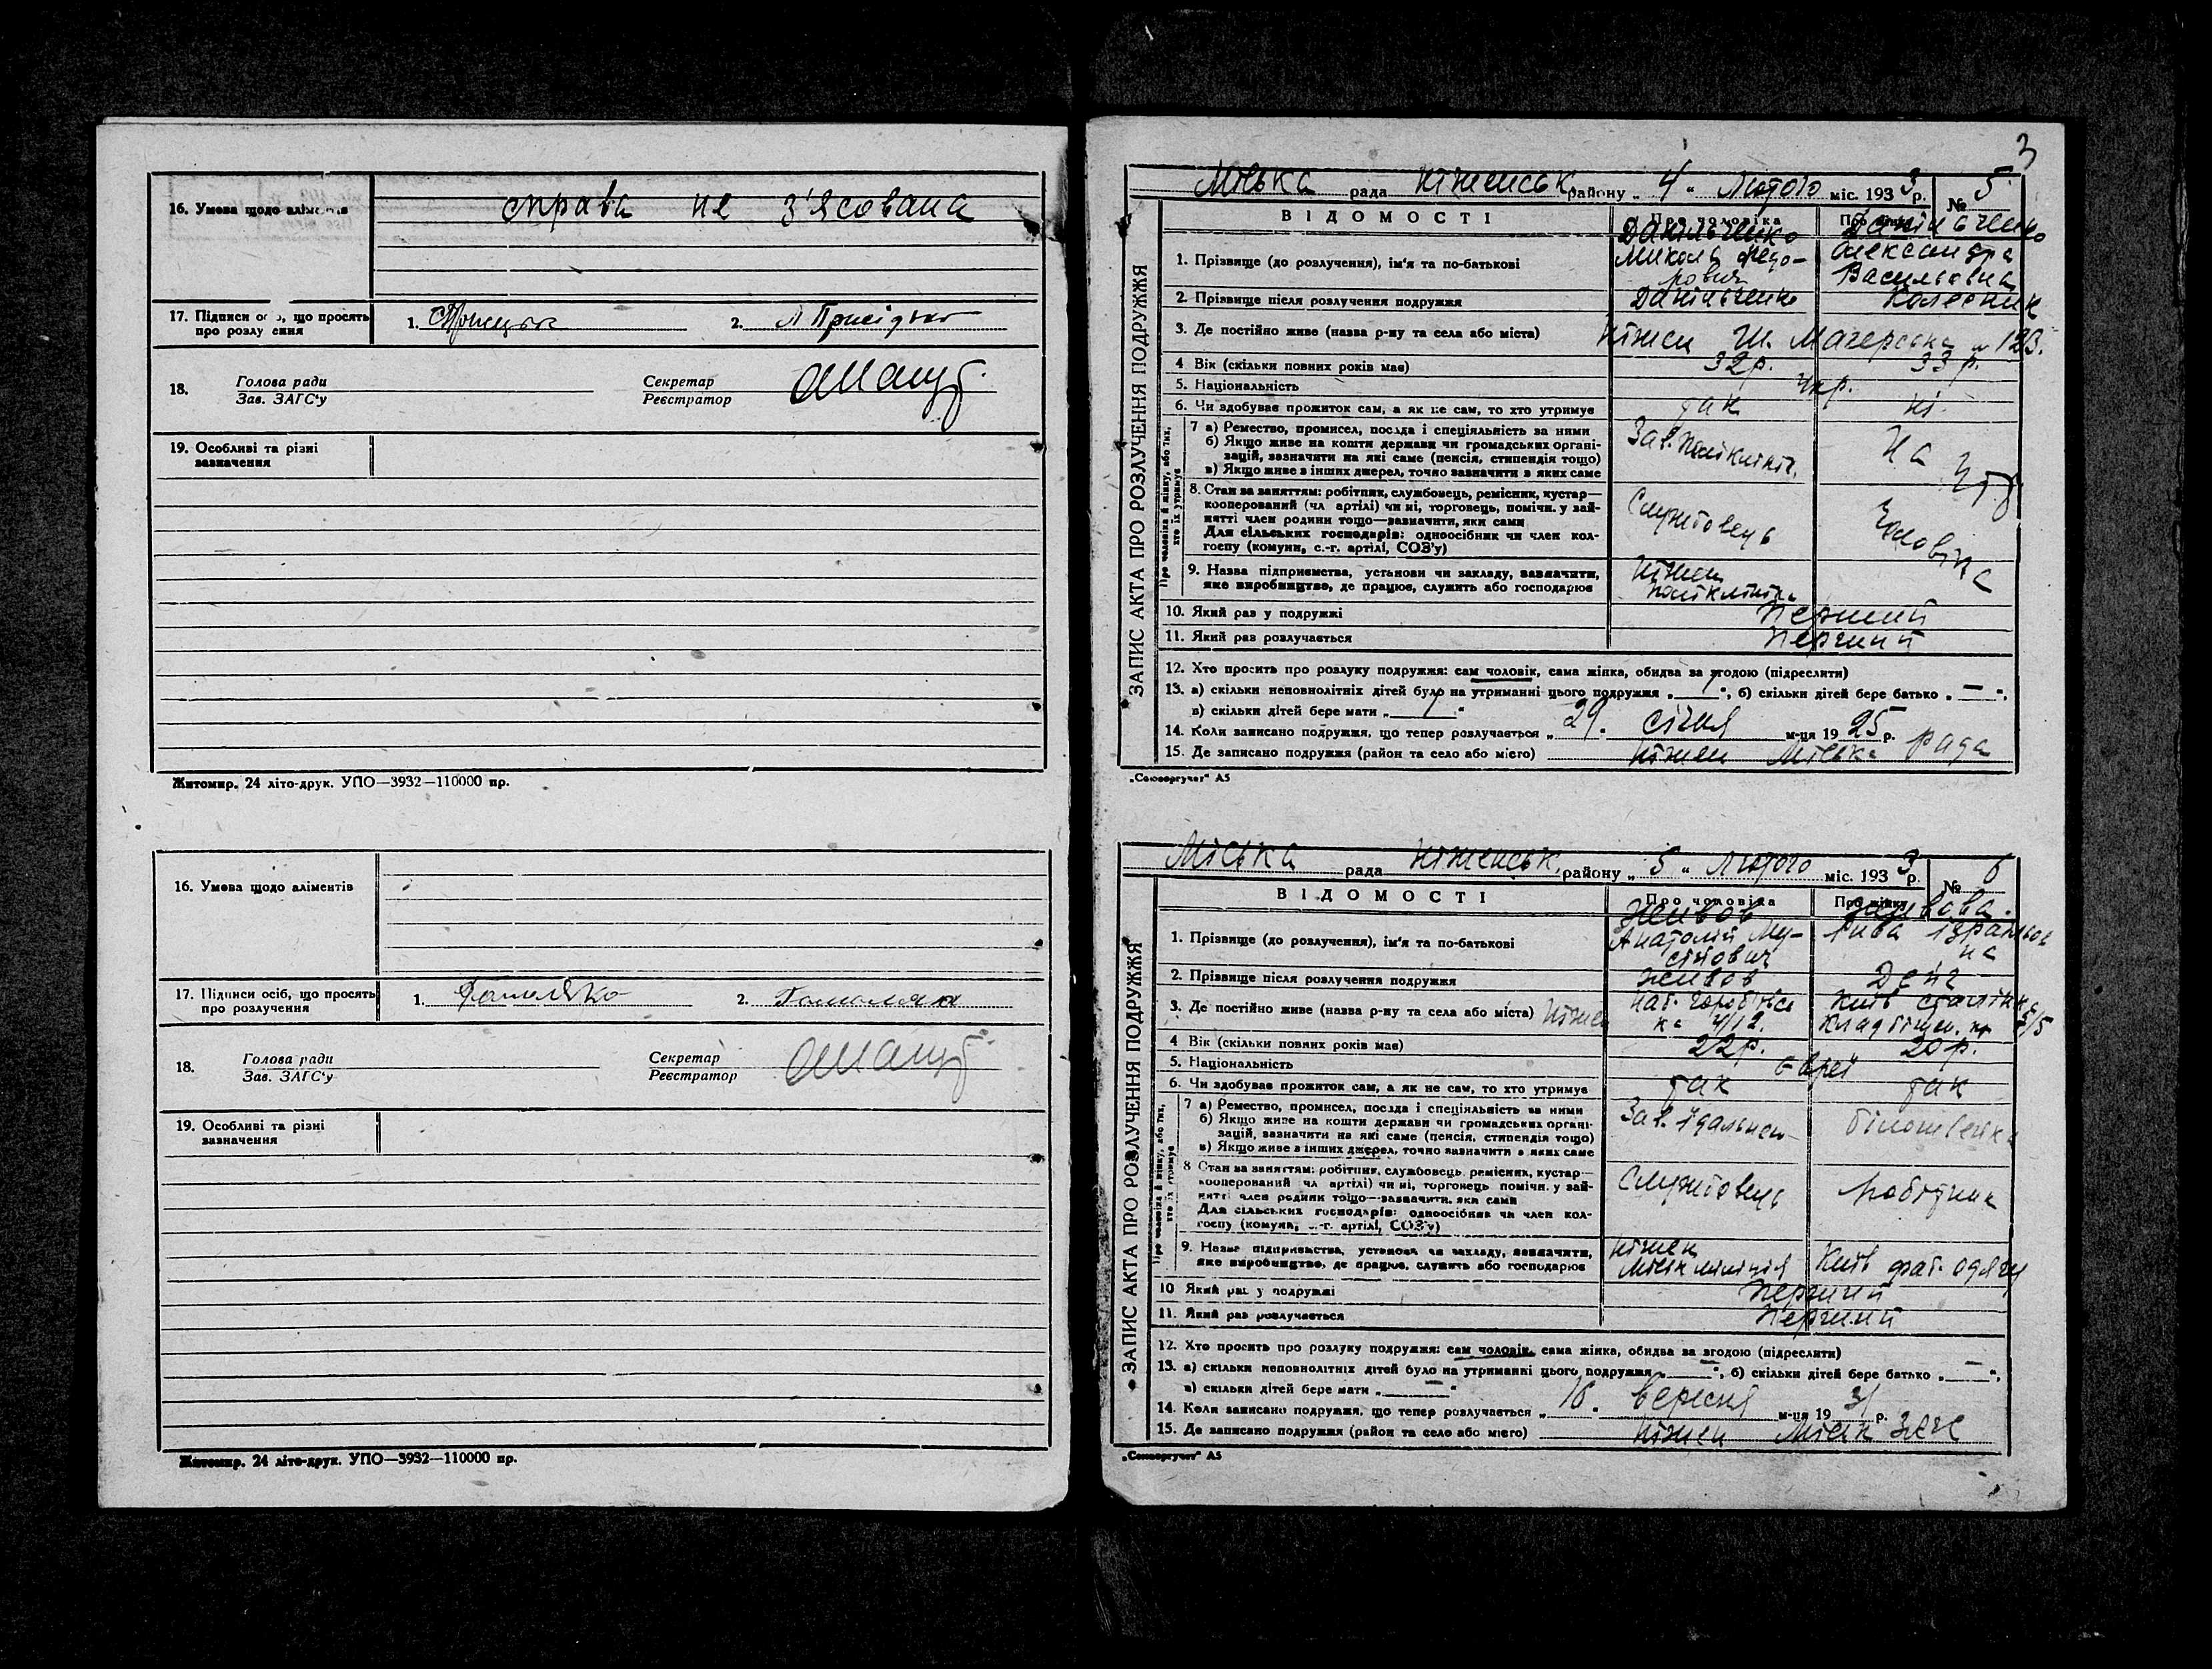 16. Умова щодо аліментів
справа не з'ясована
17. Підписи осіб, що просять
про розлучення
1.
2. Л Присідько
18.
Голова ради
Зав. ЗАГС'у
Секретар
Реєстратор
19. Особливі та різні
зазначення
Житомир. 24 літо-друк. УПО—3932—110000 пр.
16. Умова щодо аліментів
17. Підписи осіб, що просять
про розлучення
1.
2.
18.
Голова ради
Зав. ЗАГС'у
Секретар
Реєстратор
19. Особливі та різні
зазначення
Житомир. 24 літо-друк. УПО—3932—110000 пр.
3
ЗАПИС АКТА ПРО РОЗЛУЧЕННЯ ПОДРУЖЖЯ
Міська рада Ніженськ. району „ 4 “ Лютого міс. 193 3 р. № 5
ВІДОМОСТІ Про чоловіка Про жінку
1. Прізвище (до розлучення), ім'я та по-батькові
Данільченко Микола Федо-
рович
Данільченко Олександра
Васильовна
2. Прізвище після розлучення подружжя Данільченко Колесник
3. Де постійно живе (назва р-ну та села або міста) Ніжен Ш. Магерська № 123.
4 Вік (скільки повних років має) 32 р. 33 р.
5. Національність Укр.
6. Чи здобуває прожиток сам, а як не сам, то хто утримує так ні
Про чоловіка й жінку, або тих,
хто їх утримує
7 а) Ремество, промисел, посада і спеціяльність за ними
б) Якщо живе на кошти держави чи громадських органі-
зацій, зазначити на які саме (пенсія, стипендія тощо)
в) Якщо живе з інших джерел, точно зазначити з яких саме
Зав. поліклініч. На утр
8. Стан за заняттям: робітник, службовець, ремісник, кустар—
кооперований (чл артілі) чи ні, торговець, помічн. у зай-
нятті член родини тощо—зазначити, яки сами
Для сільських господарів: одноосібник чи член кол-
госпу (комуни, с.-г. артілі, СОЗ'у)
Службовець Чоловіка
9. Назва підприємства, установи чи закладу, зазначити,
яке виробництво, де працює, служить або господарює
Ніжен
поліклініка
10. Який раз у подружжі Перший
11. Який раз розлучається Перший
12. Хто просить про розлуку подружжя: сам чоловік, сама жінка, обидва за згодою (підреслити)
13. а) скільки неповнолітніх дітей було на утриманні цього подружжя „ 1 “, б) скільки дітей бере батько „ — “,
в) скільки дітей бере мати „ 1 “
14. Коли записано подружжя, що тепер розлучається „ 29. січня м-ця 19 25 р.
15. Де записано подружжя (район та село або місто) Ніжен Міська рада
„Союзоргучет“ А5
ЗАПИС АКТА ПРО РОЗЛУЧЕННЯ ПОДРУЖЖЯ
Міська рада Ніженськ. району „ 5 “ Лютого міс. 193 3 р. № 6
ВІДОМОСТІ Про чоловіка Про жінку
1. Прізвище (до розлучення), ім'я та по-батькові
Живов
Анатолій Му-
сійович
Живова.
Рива Ізраільов
на
2. Прізвище після розлучення подружжя Живов
3. Де постійно живе (назва р-ну та села або міста) Ніжен
Київ
4 Вік (скільки повних років має) 22 р. 20 р.
5. Національність Єврей
6. Чи здобуває прожиток сам, а як не сам, то хто утримує так так
Про чоловіка й жінку, або тих,
хто їх утримує
7 а) Ремество, промисел, посада і спеціяльність за ними
б) Якщо живе на кошти держави чи громадських органі-
зацій, зазначити на які саме (пенсія, стипендія тощо)
в) Якщо живе з інших джерел, точно зазначити з яких саме
Зав. їдальнею білошвейка
8 Стан за заняттям: робітник, службовець, ремісник, кустар—
кооперований чл артілі) чи ні, торговець, помічн. у зай-
нятті член родини тощо—зазначити, яки сами
Для сільських господарів: одноосібник чи член кол-
госпу (комуни, с.-г. артілі, СОЗ'у)
Службовець робітник
9. Назва підприємства, установи чи закладу, зазначити,
яке виробництво, де працює, служить або господарює
Ніжен
Міськ міліція Київ фаб. одягу
10 Який раз у подружжі Перший
11. Який раз розлучається Перший
12. Хто просить про розлуку подружжя: сам чоловік, сама жінка, обидва за згодою (підреслити)
13. а) скільки неповнолітніх дітей було на утриманні цього подружжя „ — “, б) скільки дітей бере батько „ — “,
в) скільки дітей бере мати „ — “
14. Коли записано подружжя, що тепер розлучається „ 16. вересня м-ця 19 31 р.
15. Де записано подружжя (район та село або місто) Ніжен Міськ ЗАГС
„Союзоргучет“ А5